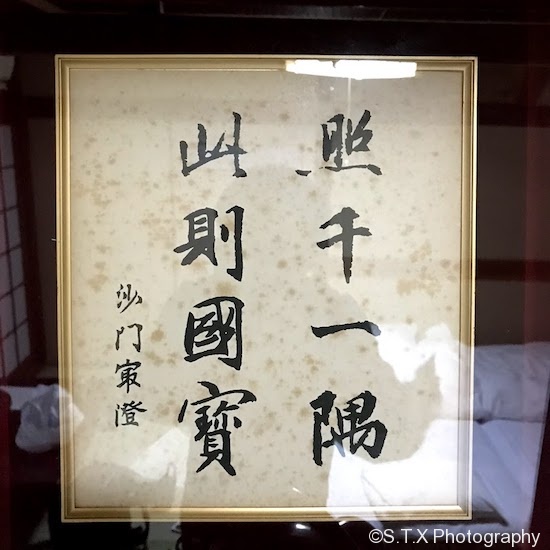 照千一隅
此則國寶
沙门最澄
©S.T.X Photography